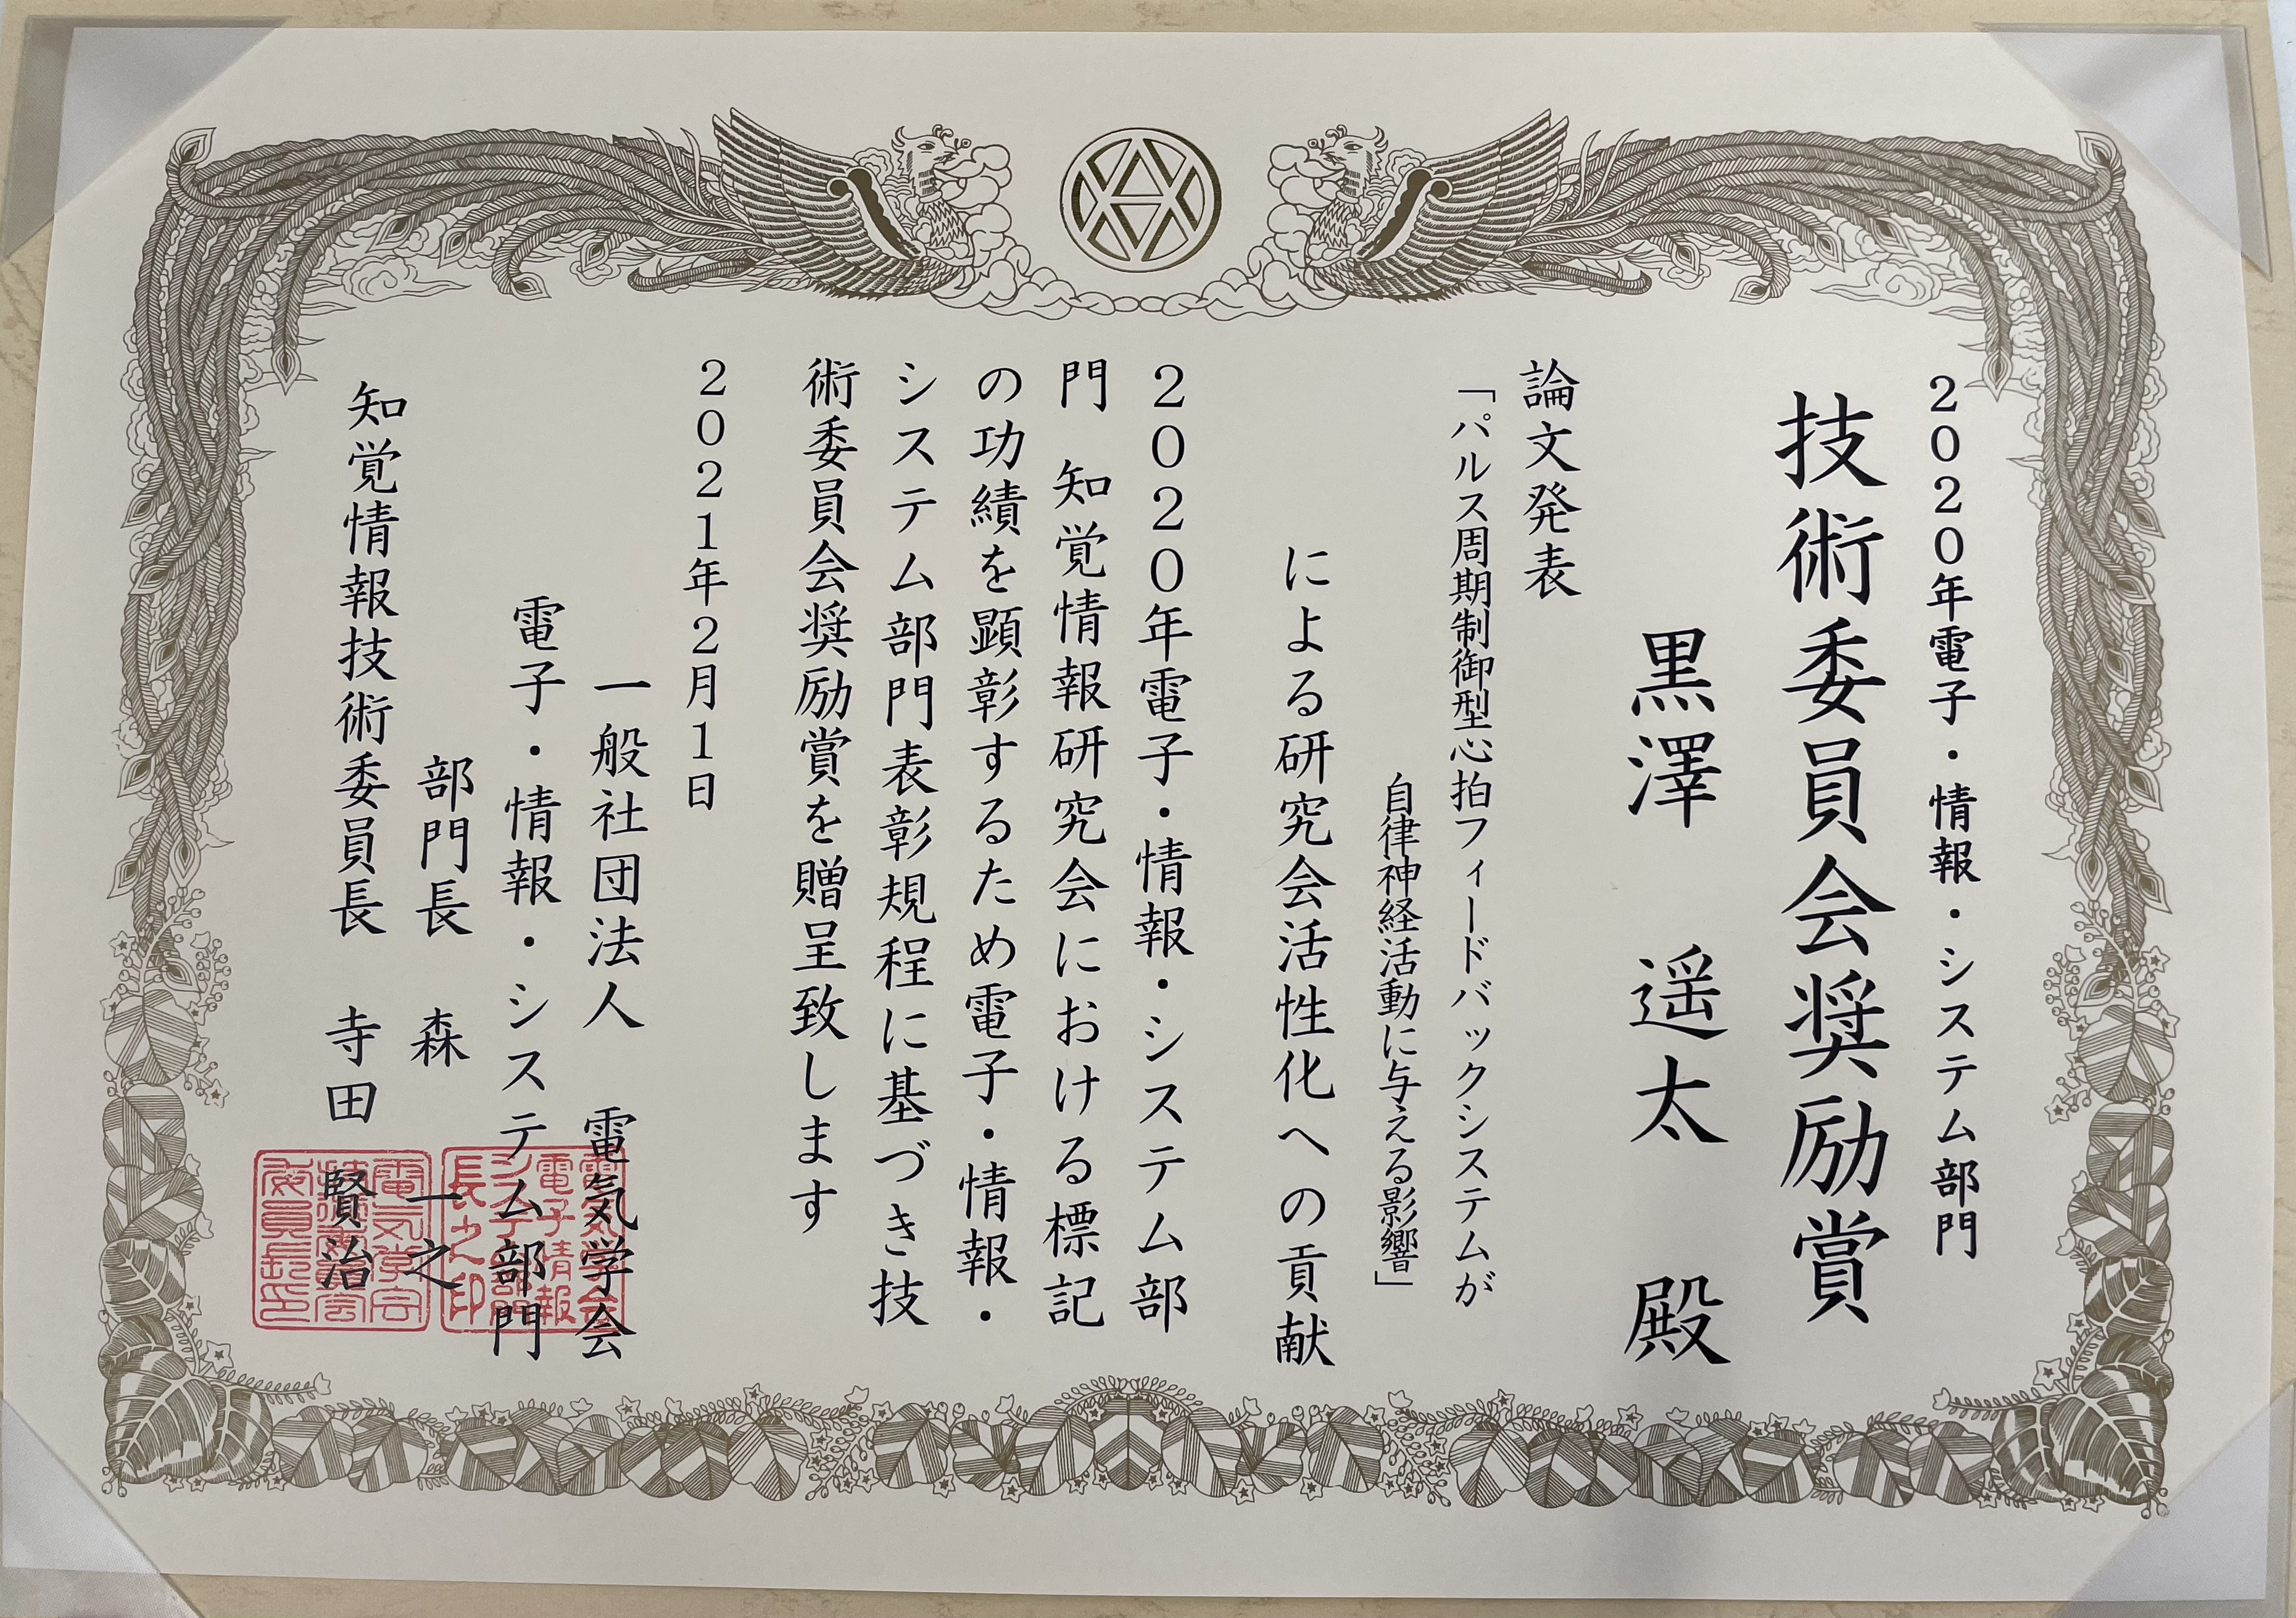 2020年電子・情報・システム部門
技術委員会奨励賞
黒澤 遥太 殿
論文発表
「パルス周期制御型心拍フィードバックシステムが
自律神経活動に与える影響」
による研究会活性化への貢献
2020年電子・情報・システム部
門 知覚情報研究会における標記
の功績を顕彰するため電子・情報・
システム部門表彰規程に基づき技
術委員会奨励賞を贈呈致します
2021年2月1日
一般社団法人 電気学会
電子・情報・システム部門
部門長 森 一之
知覚情報技術委員長 寺田 賢治